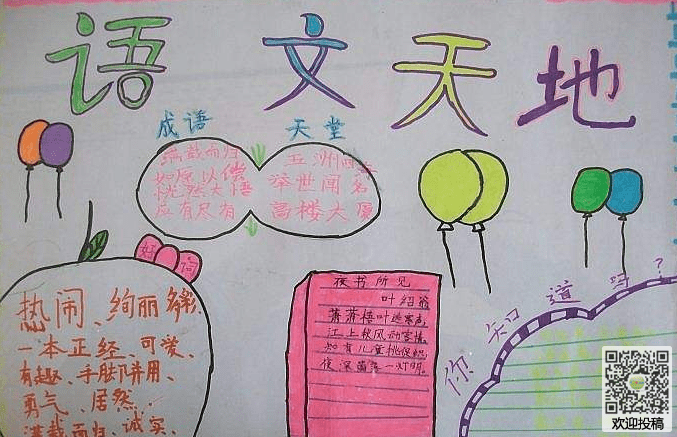 语文天地
成语 天堂
满载而归
如愿以偿
恍然大悟
应有尽有
五洲四海
举世闻名
高楼大厦
好词
热闹、绚丽多彩、
一本正经、可爱、
有趣、手脚并用、
勇气、居然、
满载而归、诚实、
夜书所见
叶绍翁
萧萧梧叶送寒声,
江上秋风动客情。
知有儿童挑促织,
夜深篱落一灯明。
你知道吗?
欢迎投稿